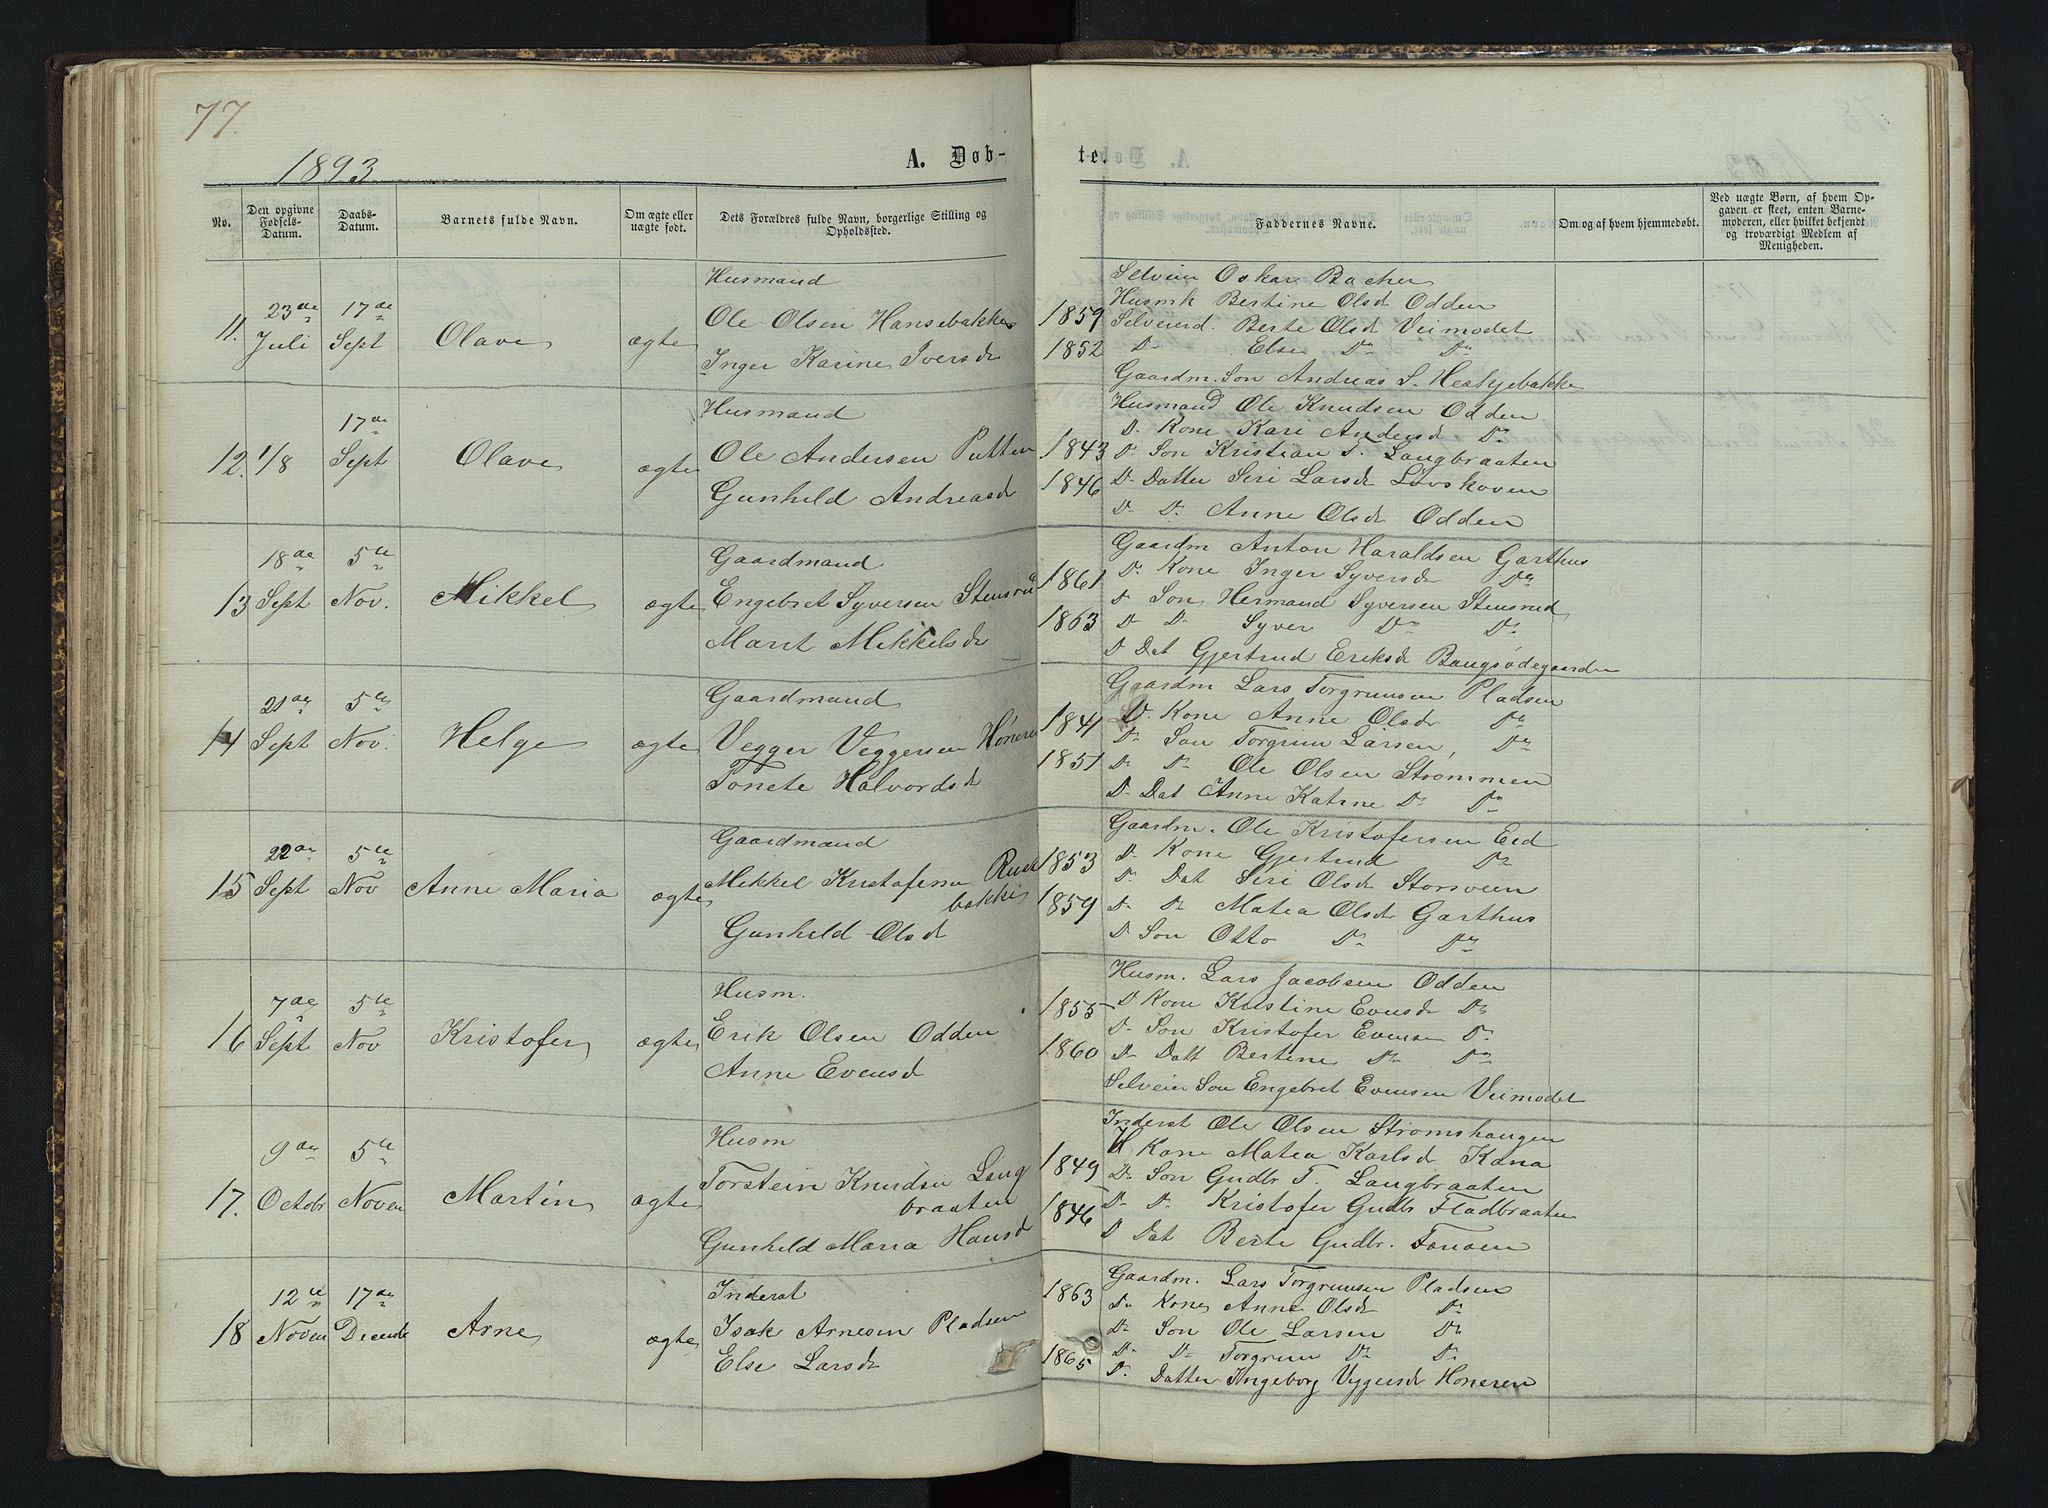 77.
1893
A. Døb-
te.
No.
Den opgivne Fødsels-Datum.
Daabs-Datum.
Barnets fulde Navn.
Om ægte eller uægte født.
Dets Forældres fulde Navn, borgerlige Stilling og Opholdssted.
Faddernes Navne.
Om og af hvem hjemmedøbt.
Ved uægte Børn, af hvem Opgaven er skeet, enten Barnemoderen, eller hvilket bekjendt og troværdigt Medlem af Menigheden.
11. 23de Juli 17de Sept Olave ægte
Husmand
Ole Olsen Hansebakke
Inger Karine Iversdr
1859
1852
Selveier Oskar Bacher
Husmk Bertine Olsd Odden
Selveierd. Berte Olsd Veimodet
Do Else Do Do
Gaardm. Søn Andreas S. Heskjebakke
12. 1/8 17de Sept Olave ægte
Husmand
Ole Andersen Putten
Gunhild Andreasd
1843
1846
Husmand Ole Knudsen Odden
Do Kone Kari Andersd Do
Do Søn Kristian T. Langbraaten
Do Datter Siri Larsd Løvskoven
Do Do Anne Olsdr Odden
13 18de Sept 5te Nov. Mikkel ægte
Gaardmand
Engebret Syversen Stensrud
Marit Mikkelsdr
1861
1863
Gaardm Anton Haraldsen Garthus
Do Kone Inger Syversdr Do
Do Søn Hermand Syversen Stensrud
Do Do Syver Do Do
Do Dat Gjertrud Eriksdr Bangsødegaarden
14 21de Sept 5te Nov. Helge ægte
Gaardmand
Vegger Veggersen Høneren
Tonete Halvordsd
1841
1851
Gaardm Lars Torgrimsen Pladsen
Do Kone Anne Olsdr Do
Do Søn Torgrim Larsen, Do
Do Do Ole Olsen Strømmen
Do Dat Anne Katrine Do Do
15 22de Sept 5te Nov Anne Maria ægte
Gaardmand
Mikkel Kristofersen Rust
bakke
Gunhild Olsd
1853
1859
Gaardm. Ole Kristofersen Eid
Do Kone Gjertrud Do
Do Dat Siri Olsdr Storsveen
Do Do Matea Olsdr Garthus
Do Søn Otto Do Do
16 7de Sept 5te Nov Kristofer ægte
Husm.
Erik Olsen Odden
Anne Evensd
1855
1860
Husm. Lars Jacobsen Odden
Do Kone Kristine Evensdr Do
Do Søn Kristofer Evensen Do
Do Datt Bertine Do Do
Selveier Søn Engebret Evensen Veimodet
17. 9de Octobr 5te Noven Martin ægte
Husm
Torstein Knudsen Lang
braaten
Gunhild Maria Hansd
1849
1846
Inderst Ole Olsen Strømshaugen
H Kone Matea Karlsd Kana
Do Søn Gudbr T. Langbraaten
Do Do Kristofer Gudbr Fladbraaten
Do Dat Berte Gudbr.
18 12te Noven 17de Decembr Arne ægte
Inderst
Isak Arnesen Pladsen
Else Larsdr
1863
1865
Gaardm. Lars Torgrimsen Pladsen
Do Kone Anne Olsdr Do
Do Søn Ole Larsen Do
Do Do Torgrim Do Do
Do Datter Ingeborg Veggersdr Høneren